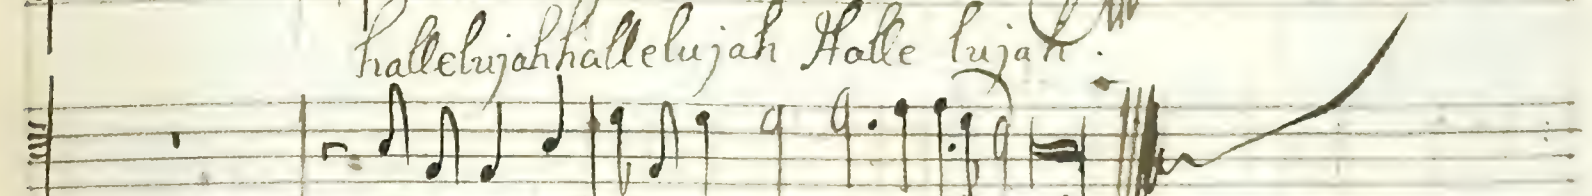 hallelujah hallelujah Halle lujah.